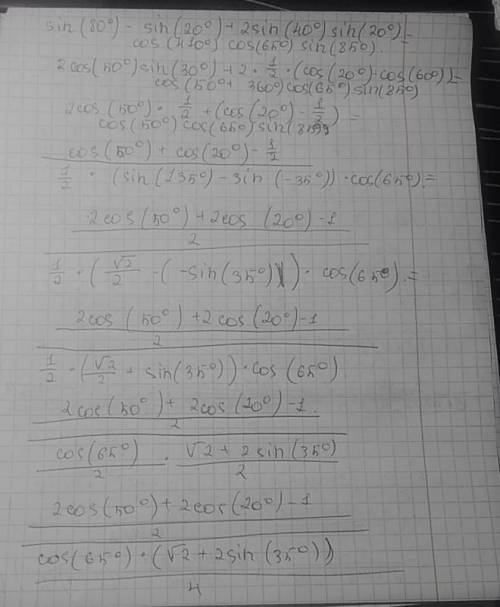 sin(80°) - sin(20°) + 2sin(40°)sin(20°) =
cos(410°) cos(65°) sin(85°).
2cos(50°)sin(30°) + 2 · 1/2 · (cos(20°) - cos(60°)) =
cos(50° + 360°)cos(65°)sin(85°)
2cos(50°) · 1/2 + (cos(20°) - 1/2) =
cos(50°)cos(65°)sin(85°)
cos(50°) + cos(20°) - 1/2
1/2 · (sin(135°) - sin(-35°)) · cos(65°) =
2cos(50°) + 2cos(20°) - 1
2
1/2 · (√2/2 - (-sin(35°))) · cos(65°) =
2cos(50°) + 2cos(20°) - 1
2
1/2 · (√2/2 + sin(35°)) · cos(65°)
2cos(50°) + 2cos(20°) - 1
2
cos(65°)/2 · √2 + 2sin(35°)/2
2cos(50°) + 2cos(20°) - 1
2
cos(65°) · (√2 + 2sin(35°))
4